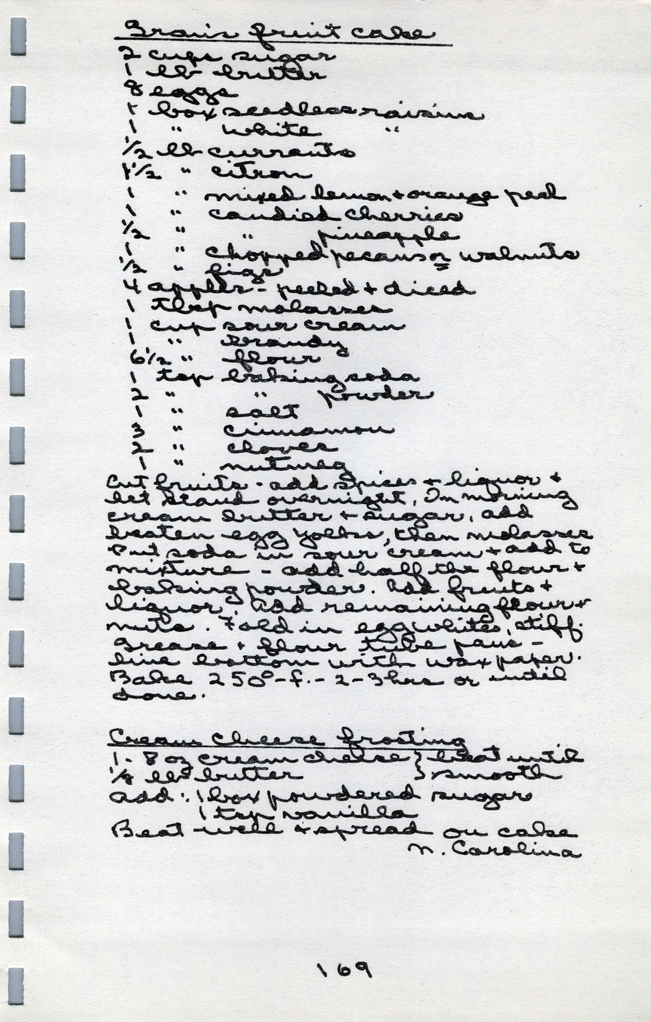 Gram's fruit cake
2 cups sugar
1 lb butter
8 eggs
1 box seedless raisins
1 " white "
1/2 lb currants
1 1/2 " citron
1 " mixed lemon + orange peel
1 " candied cherries
1/2 " " pineapple
1 " chopped pecans or walnuts
1/2 " figs
4 apples - peeled + diced
1 tbsp molasses
1 cup sour cream
1 " brandy
6 1/2 " flour
1 tsp baking soda
2 " " powder
1 " salt
3 " cinnamon
2 " cloves
1 " nutmeg
Cut fruits - add spices + liquor +
let stand overnight. In morning
cream butter + sugar, add
beaten egg yolks, then molasses
Put soda in sour cream + add to
mixture - add half the flour +
baking powder. Add fruits +
liquor. Add remaining flour +
nuts. Fold in egg whites, stiff.
Grease + flour tube pans -
line bottom with wax paper.
Bake 250°-f. - 2-3 hrs or until
done.
Cream Cheese frosting
1 - 8 oz cream cheese } beat until
1/4 lb butter } smooth
add: 1 box powdered sugar
1 tsp vanilla
Beat well + spread on cake
N. Carolina
169